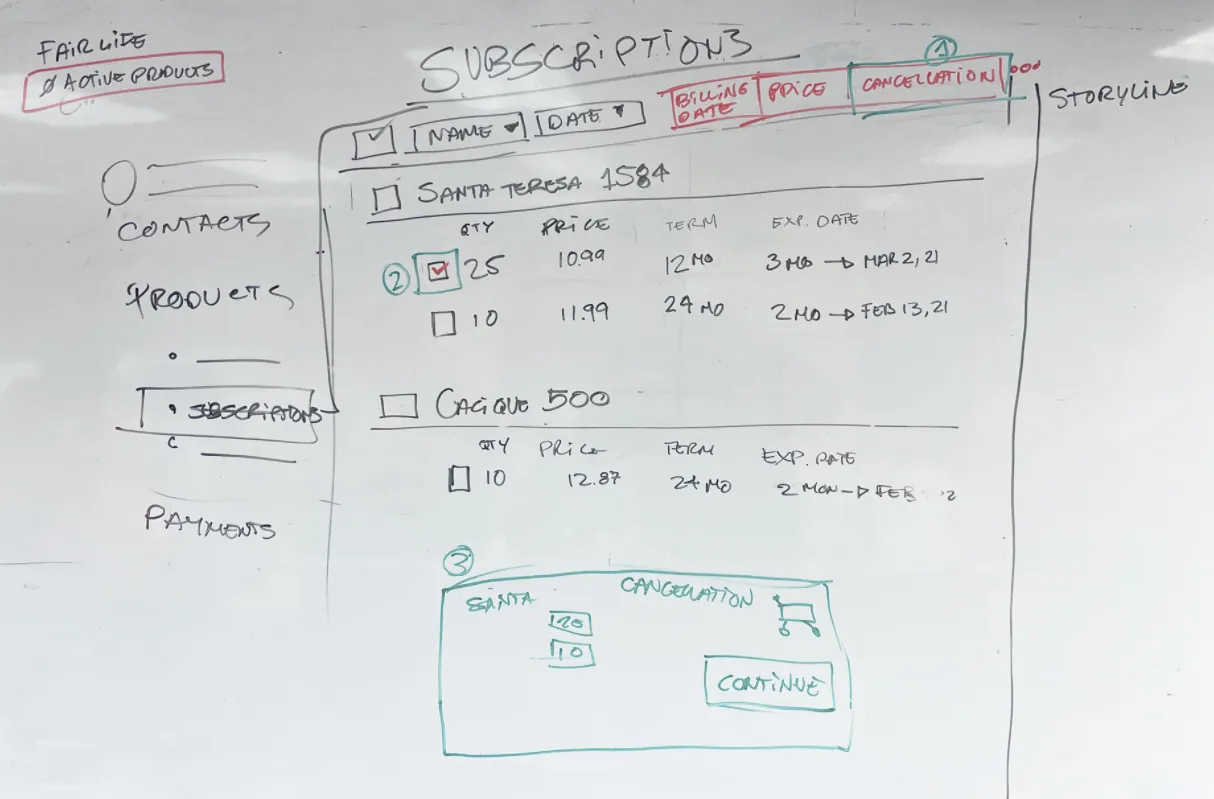 FAIRLIFE
Ø ACTIVE PRODUCTS
SUBSCRIPTIONS
1
NAME DATE BILLING DATE PRICE CANCELLATION
STORYLINE
CONTACTS
PRODUCTS
SUBSCRIPTIONS
PAYMENTS
SANTA TERESA 1584
QTY PRICE TERM EXP. DATE
2 25 10.99 12 MO 3 MO → MAR 2, 21
10 11.99 24 MO 2 MO → FEB 13, 21
CACIQUE 500
QTY PRICE TERM EXP. DATE
10 12.87 24 MO 2 MON → FEB
3
SANTA CANCELLATION
10
CONTINUE